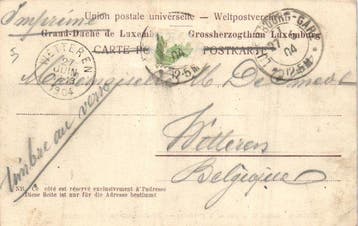 Imprimé
Union postale universelle — Weltpostverein
Grand-Duché de Luxemb Grossherzogthum Luxemburg
CARTE PO POSTKARTE
5
WETTEREN
27
JUIN
1904
GARE
27
04
Mademoiselle M. De
Wetteren
Belgique
timbre au verso
NB. Ce côté est réservé exclusivement à l'adresse
Diese Seite ist nur für die Adresse bestimmt